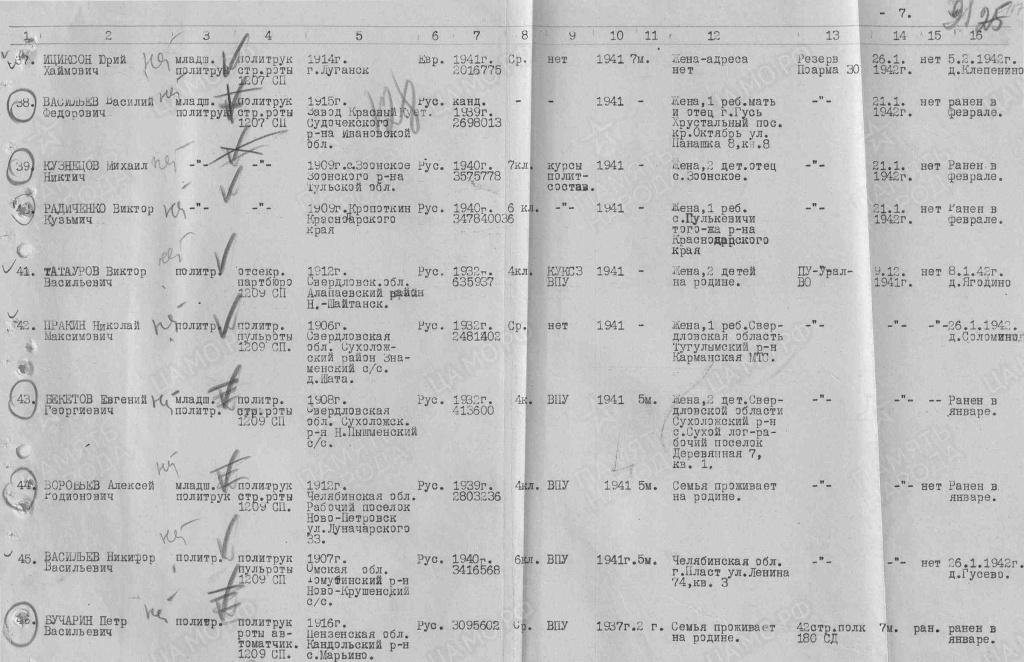 - 7.
9/25
1. 2 3. 4 5 6 7 8 9 10 11 12 13 14 15 16
37. ИЦИКСОН Юрий нет младш. политрук 1914г. Евр. 1941г. Ср. нет 1941 7м. Жена-адреса Резерв 26.1. нет 5.2.1942г.
Хаймович политрук стр.роты г.Луганск 2016775 нет Поарма 30 1942г. д.Клепенино
1207 СП
38. ВАСИЛЬЕВ Василий нет младш. политрук 1915г. Рус. канд. - - 1941 - Жена,1 реб.мать -"- 21.1. нет ранен в
Федорович политрук стр.роты Завод Красный 1939г. и отец г.Гусь 1942г. феврале.
1207 СП Судочекского 2698013 Хрустальный пос.
р-на Ивановской кр.Октябрь ул.
обл. Панашка 8,кв.8
128
39. КУЗНЕЦОВ Михаил нет -"- -"- 1909г.с.Зоонское Рус. 1940г. 7кл. курсы 1941 - Жена,2 дет.отец -"- 21.1. нет Ранен в
Никтич Зоонского р-на 3575778 полит- с.Зоонское. 1942г. феврале.
Тульской обл. состав.
40. РАДИЧЕНКО Виктор нет -"- -"- 1909г.Кропоткин Рус. 1940г. 6 кл. -"- 1941 - Жена,1 реб. -"- 21.1. нет Ранен в
Кузьмич Краснодарского 347840036 с.Пулькевичи 1942г. феврале.
края того-жа р-на
Краснодарского
края
41. ТАТАУРОВ Виктор нет политр. отсекр. 1912г. Рус. 1932г. 4кл. КУКСЗ 1941 - Жена,2 детей ПУ-Урал- 9.12. нет 8.1.42г.
Васильевич партбюро Свердловск.обл. 635937 ВПУ на родине. ВО 1941г. д.Ягодино
1209 СП Алапаевский район
Н.-Шайтанск.
42. ПРАКИН Николай нет политр. политр. 1906г. Рус. 1932г. Ср. нет 1941 - Жена,1 реб.Свер- -"- -"- -"- 26.1.1942.
Максимович пульроты Свердловская 2481402 дловская область д.Соломино
1209 СП. обл. Сухолож- Тугулымский р-н
ский район Зна- Карманская МТС.
менский с/с.
д.Шата.
43. БЕКЕТОВ Евгений нет младш. политр. 1908г. Рус. 1932г. 4к. ВПУ 1941 5м. Жена,2 дет.Свер- -"- -"- -- Ранен в
Георгиевич политр. стр.роты Свердловская 413600 дловской области январе.
1209 СП обл. Сухоложск. Сухоложский р-н
р-н Н.Пышменский с.Сухой лог-ра-
с/с. бочий поселок
Деревянная 7,
кв. 1.
44. ВОРОБЬЕВ Алексей нет младш. политрук 1912г. Рус. 1939г. 4кл. ВПУ 1941 5м. Семья проживает -"- -"- нет Ранен в
Родионович политрук стр.роты Челябинская обл. 2803236 на родине. январе.
1209 СП. Рабочий поселок
Ново-Петровск
ул.Луначарского
33.
45. ВАСИЛЬЕВ Никифор нет политр. политрук 1907г. Рус. 1940г. 6кл. ВПУ 1941г.5м. Челябинская обл. -"- -"- нет 26.1.1942г.
Васильевич пульроты Омская обл. 3416568 г.Пласт ул.Ленина д.Гусево.
1209 СП р-н 74,кв. 3
Ново-Крушенский
с/с.
46. БУЧАРИН Петр нет политр. политрук 1916г. Рус. 3095602 Ср. ВПУ 1937г.2 г. Семья проживает 42стр.полк 7м. ран. ранен в
Васильевич роты ав- Пензенская обл. на родине. 180 СД январе.
томатчик. Кандольский р-н
1209 СП. с.Марьино.